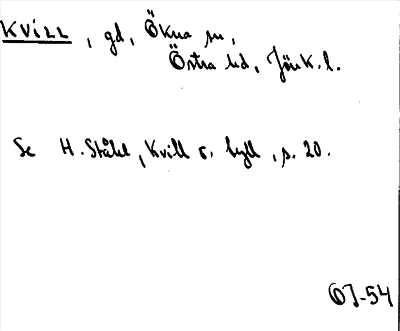 KVILL, gd, Ökna sn,
Östra hd, Jönk. l.
Se H. Ståhl, Kvill o. hyll, s. 20.
OJ-54